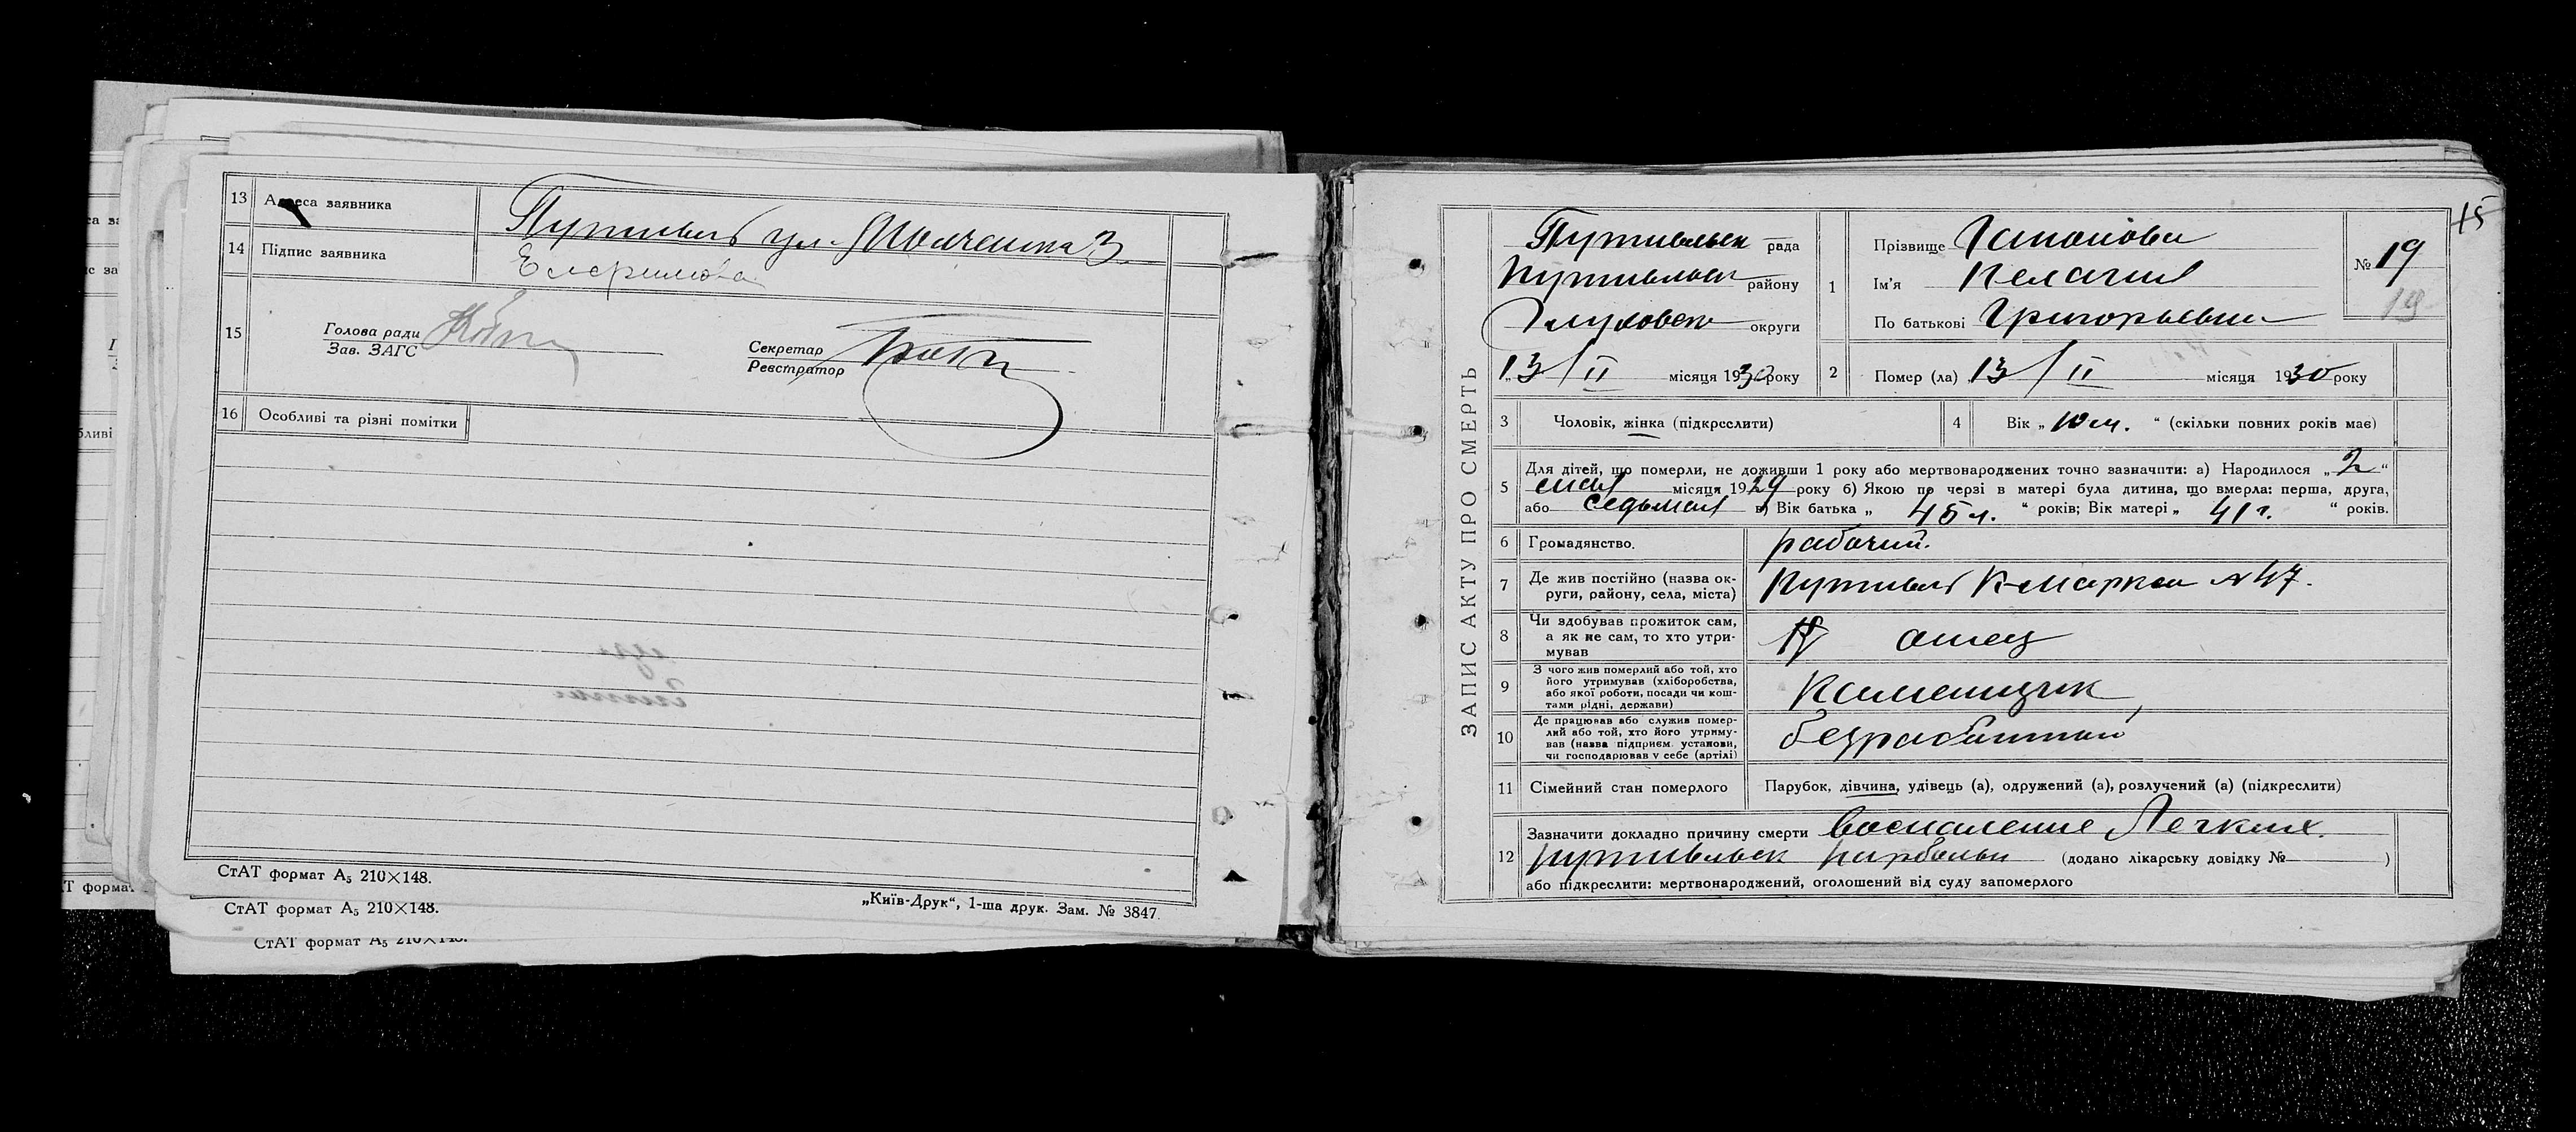 13 Адреса заявника Путивль ул.
14 Підпис заявника
15 Голова ради
Зав. ЗАГС
Секретар
Реєстратор
16 Особливі та різні помітки
СтАТ формат А₅ 210×148.
„Київ-Друк“, 1-ша друк. Зам. № 3847.
СтАТ формат А₅ 210×148.
СтАТ формат А₅ 210×148.
15
ЗАПИС АКТУ ПРО СМЕРТЬ
Путивльск рада
Путивльск району
Глуховск округи
13/II місяця 1930 року
1 Прізвище
Ім'я Пелагия
По батькові Григорьевна
№ 19
19
2 Помер (ла) 13/II місяця 1930 року
3 Чоловік, жінка (підкреслити)
4 Вік „ 10 м. “ (скільки повних років має)
5 Для дітей, що померли, не доживши 1 року або мертвонароджених точно зазначити: а) Народилося „ 2 “
мая місяця 1929 року б) Якою по черзі в матері була дитина, що вмерла: перша, друга,
або седьмая в) Вік батька „ 45 л. “ років; Вік матері „ 41 г. “ років.
6 Громадянство. рабочий.
7 Де жив постійно (назва ок-
руги, району, села, міста) Путивль К-Маркса № 47.
8 Чи здобував прожиток сам,
а як не сам, то хто утри-
мував отец
9 З чого жив померлий або той, хто
його утримував (хліборобства,
або якої роботи, посади чи кош-
тами рідні, держави) Каменщик,
10 Де працював або служив помер-
лий або той, хто його утриму-
вав (назва підприєм. установи,
чи господарював у себе (артілі) безработный
11 Сімейний стан померлого Парубок, дівчина, удівець (а), одружений (а), розлучений (а) (підкреслити)
12 Зазначити докладно причину смерти воспаление Легких.
Путивльск (додано лікарську довідку № )
або підкреслити: мертвонароджений, оголошений від суду запомерлого